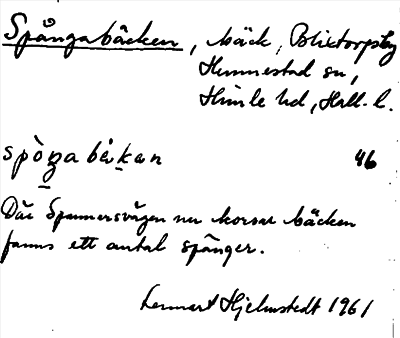 Spångabäcken, bäck, Blixtorpsby
Hunnestad sn,
Himle hd, Hall. l.
spòŋabäkan 46
Där Spannarsvägen nu korsar bäcken
fanns ett antal spänger.
Lennart Hjelmstedt 1961